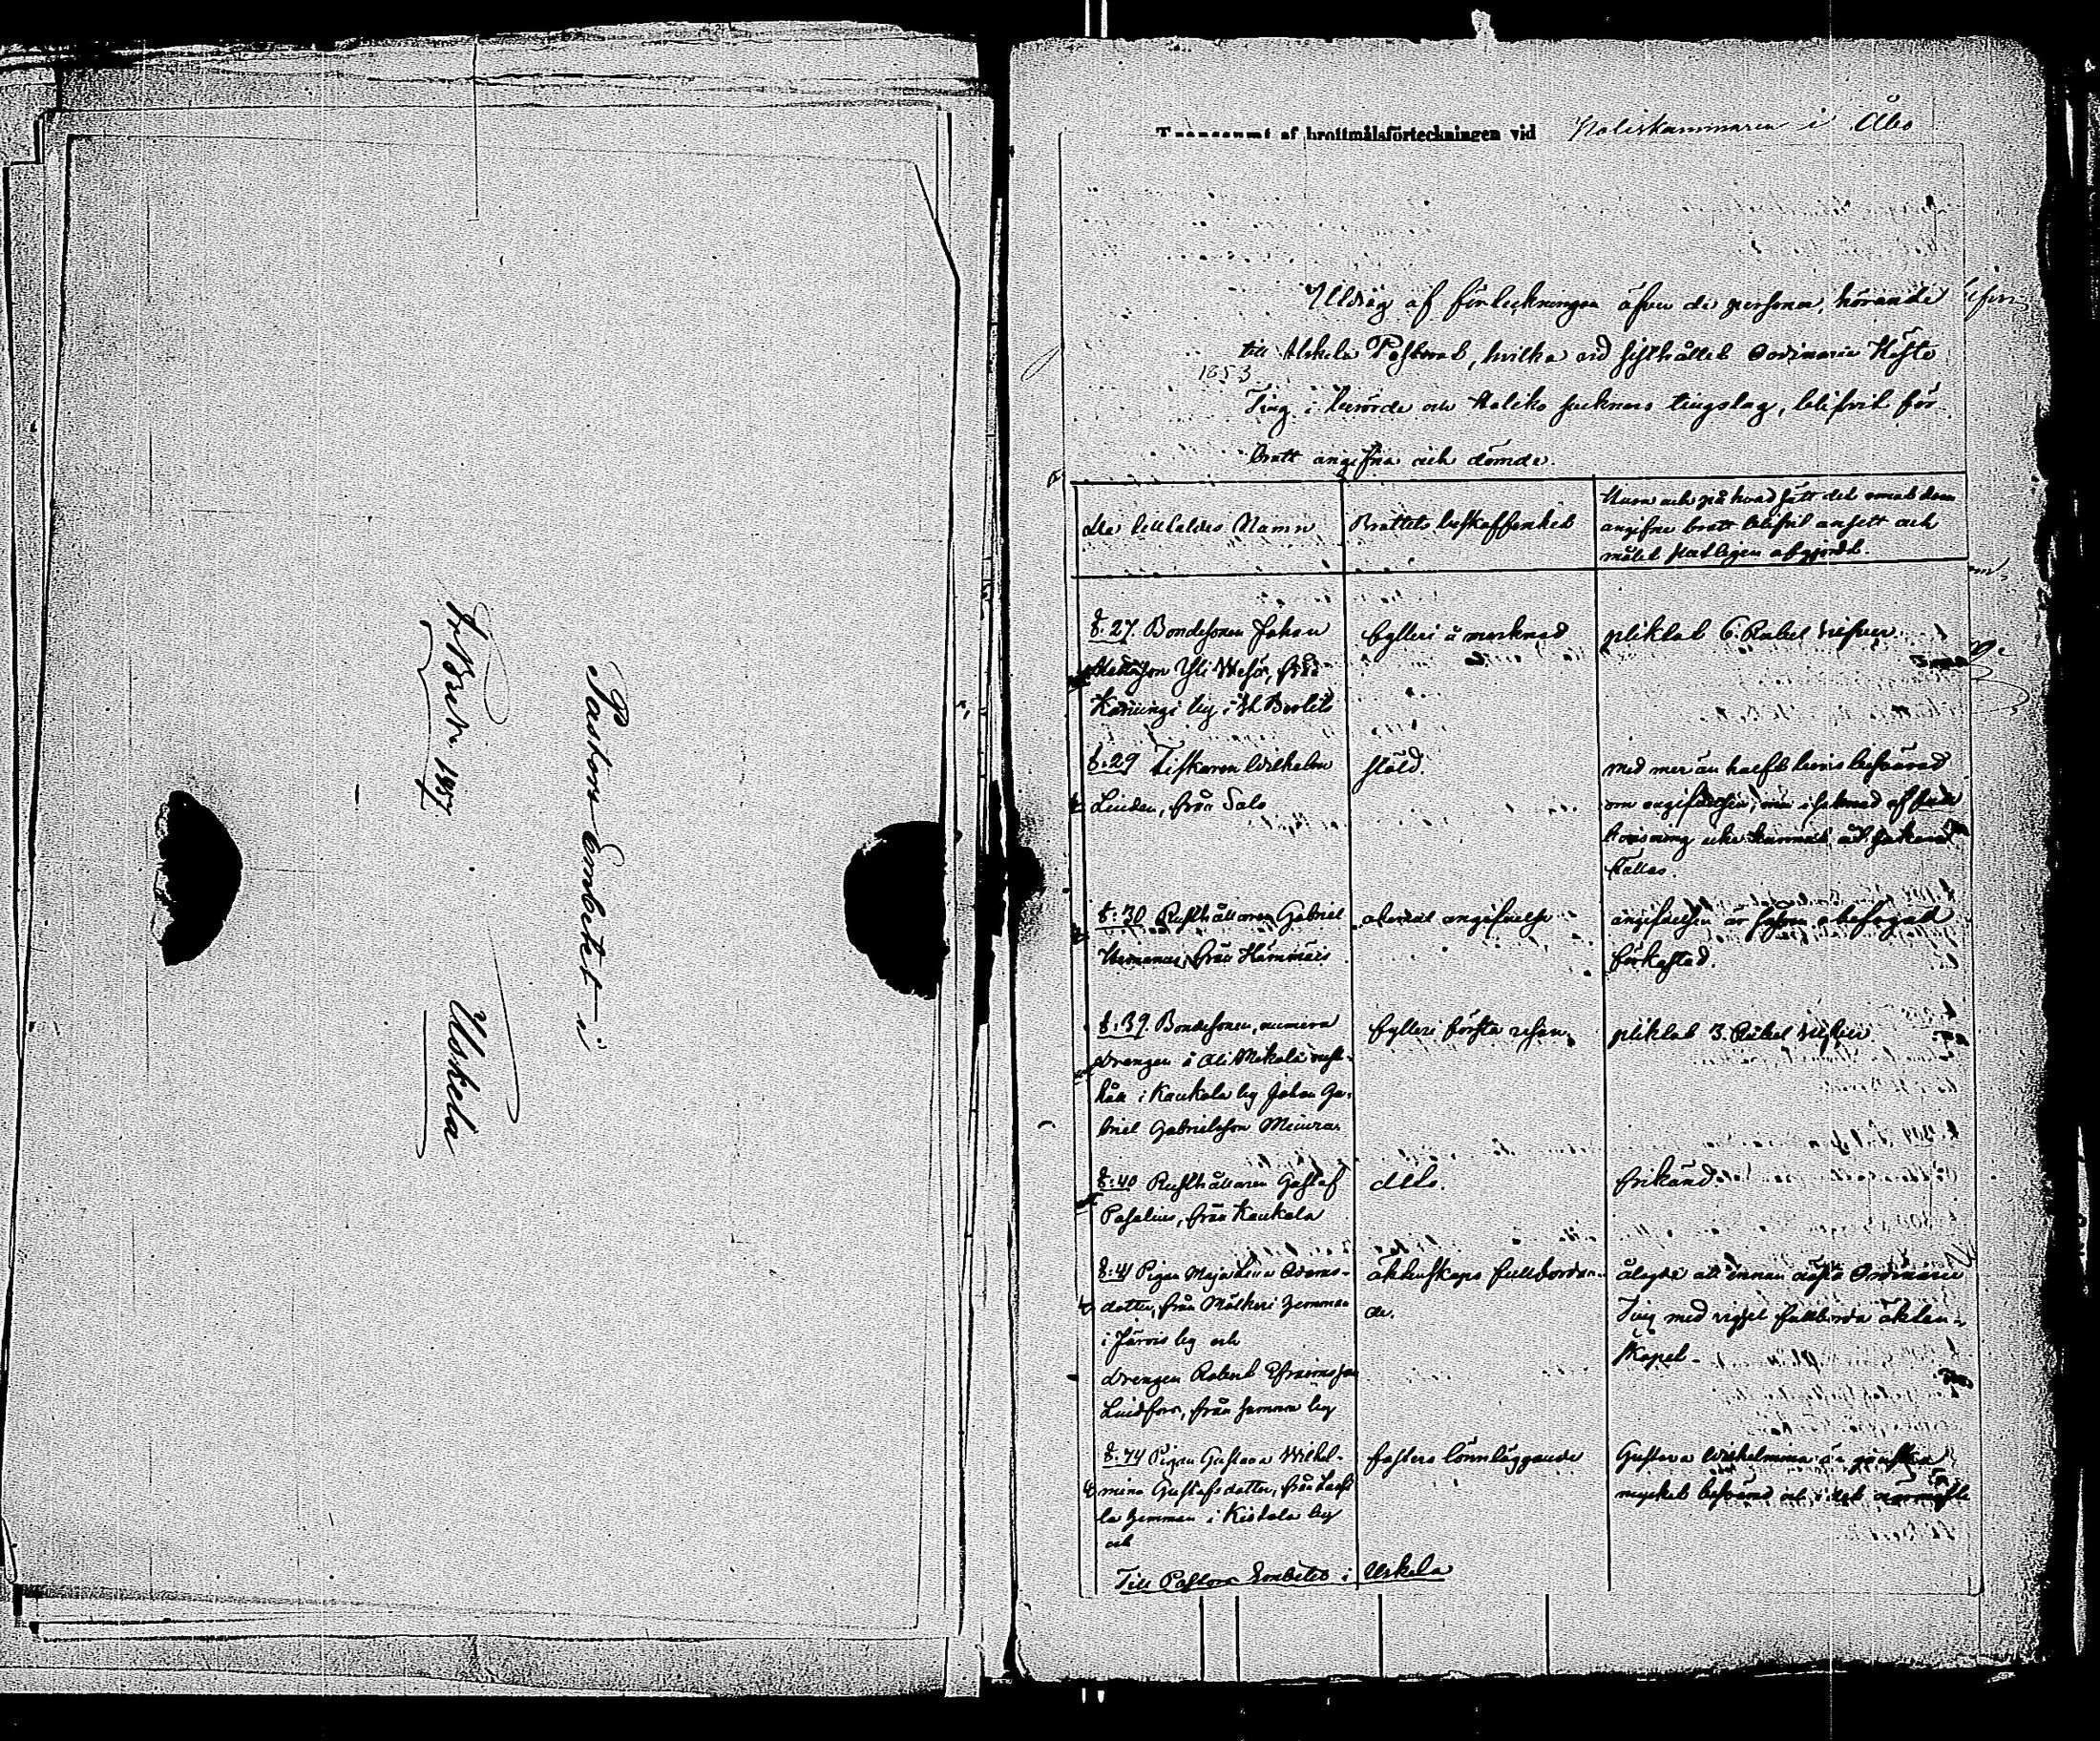 Pastors Embetet i
Uskela
af brottmålsförteckningen vid Poliskammaren i Åbo
Utdrag af förteckningen öfver de personer, hörande
till Uskela Pastorat, hvilka vid sisthållet Ordinarie Höste
1853
Ting i och Haliko socknars tingslag, blifvit för
brott angifna och dömde.
De tilltaldes Namn
Brottets beskaffenhet
Huru och på hvad sätt det omat dem
angifne brott blifvit ansett och
målet slutligen afgjordt.
§. 27. Bondesonen Johan
Mattsson Yli Wesa, från
Kaninge by i St Bertils
fylleri å marknad
pliktat 6. Rubel silfver.
§. 29 Fiskaren Wilhelm
Linden, från Salo
stöld.
med mer än halft bevis besvärad
om angifvelsen, men i saknad af full
bevisning icke kunnat åt saken
fällas.
§. 30 Rusthållaren Gabriel
från Hämmäis
obevist angifvelse
angifvelsen är såsom obefogad
förkastad.
§. 39. Bondesonen, numera
drengen i Ali Mekala rust-
håll i Kaukola by Johan Ga-
briel Gabrielsson
fylleri första resan.
pliktat 3. Rubel silfver.
§. 40 Rusthållaren Gustaf
från Kaukola
dito.
frikänd
§. 41 Pigan Maja Lisa Adams-
dotter, från hemman
i Järvis by och
drengen Robert Efraimsson
Lindfors, från samma by
äktenskaps fullbordan-
de.
ålagde att innan nästa Ordinarie
Ting med vigsel fullborda äkten-
skapet.
§. 74 Pigan Gustava Wilhel-
mina Gustafsdotter, från
la hemman i Kistola by
och
fosters lönnläggande
Gustava Wilhelmina är ganska
mycket besvärad att i det närmaste
Till Pastors Embetet i Uskela